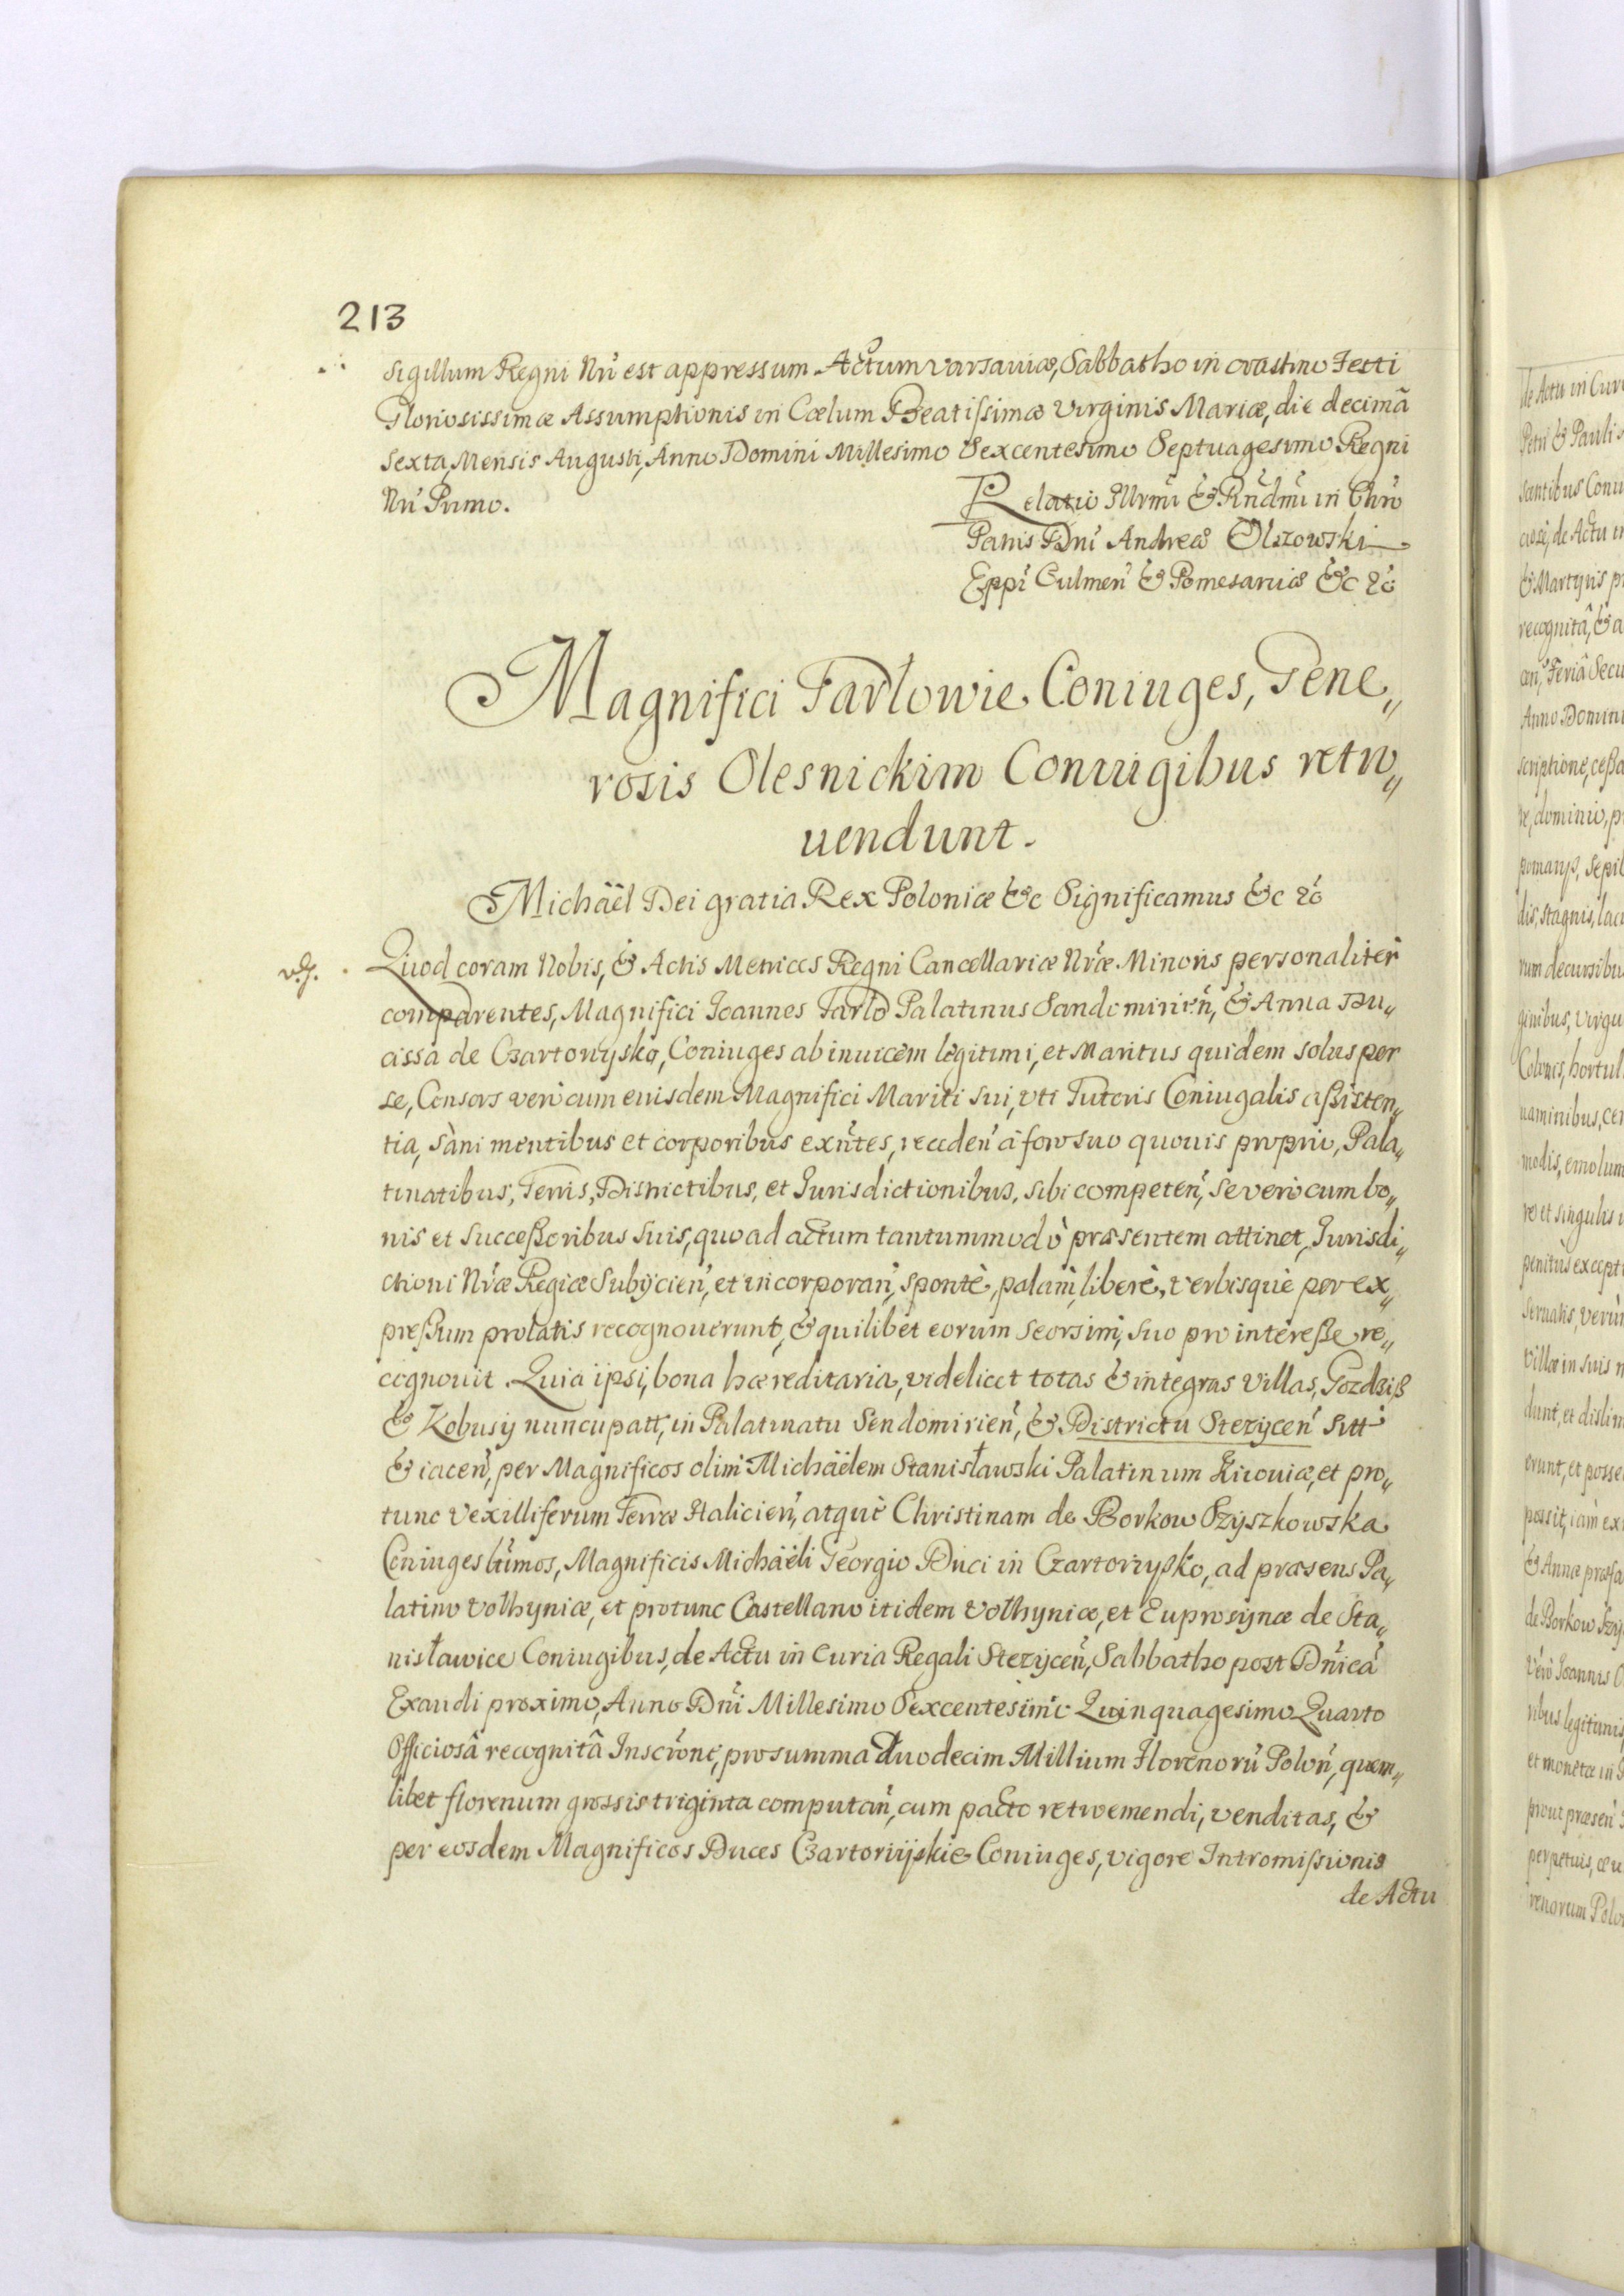 213
sigillum Regni Nri est appressum. Actum Varsaviæ, Sabbatho in crastino Festi
Gloriosissimæ Assumptionis in Cœlum Beatissimæ Virginis Mariæ, die decimâ
sexta, Mensis Augusti, Anno Domini Millesimo Sexcentesimo Septuagesimo Regni
Nri Primo.
Relatio Illrmi & Rndmi in Chro
Patris Dni Andreæ Olszowski
Eppi Culmen & Pomesaniæ &c &c
Magnifici Tarlowie Coniuges, Gene„
rosis Olesnickim Coniugibus retro„
uendunt.
Michäel Dei gratia Rex Poloniæ &c Significamus &c &c
Quod coram Nobis, & Actis Metrices Regni Cancellariæ Nræ Minoris personaliter
comparentes, Magnifici Joannes Tarlo Palatinus Sandomirien, & Anna Du„
cissa de Czartorysko, Coniuges ab inuicem legitimi, et Maritus quidem solus per
se, Consors verò cum euisdem Magnifici Mariti sui, vti Tutoris Coniugalis assisten„
tia, sani mentibus et corporibus exntes, receden à foro suo quouis proprio, Pala„
tinatibus, Terris, Districtibus, et Jurisdictionibus, sibi competen, se verò cum bo„
nis et successoribus suis, quo ad actum tantummodò præsentem attinet, Jurisdi„
ctioni Nræ Regiæ subijcien, et incorporan, spontè, palàm, liberè, verbisquè per ex„
pressum prolatis recognouerunt, & quilibet eorum seorsim, suo pro interesse, re„
cognouit. Quia ipsi, bona hæreditaria, videlicet totas & integras Villas, Gozdziß
& Kobusy nuncupatt, in Palatinatu Sendomirien, & Districtu Stezycen sitt
& iacen, per Magnificos olim Michäelem Stanisławski Palatinum Kiiouiæ, et pro„
tunc Vexilliferum Terræ Halicien, atquè Christinam de Borkow Szyszkowska
Coniuges ltimos, Magnificis Michäeli Georgio Duci in Czartorzysko, ad præsens Pa„
latino Volhyniæ, et protunc Castellano itidem Volhyniæ, et Euprosynæ de Sta„
nisławice Coniugibus, de Actu in Curia Regali Stezycen, Sabbatho post Dnicã
Exaudi proximo, Anno Dni Millesimo Sexcentesimo Quinquagesimo Quarto
Officiosâ recognitâ Inscrone, pro summa Duodecim Millium Florenorũ Polon, quem„
libet florenum grossis triginta computan, cum pacto retroemendi, venditas, &
per eosdem Magnificos Duces Czartoriyskie Coniuges, vigore Intromissionis
de Actu